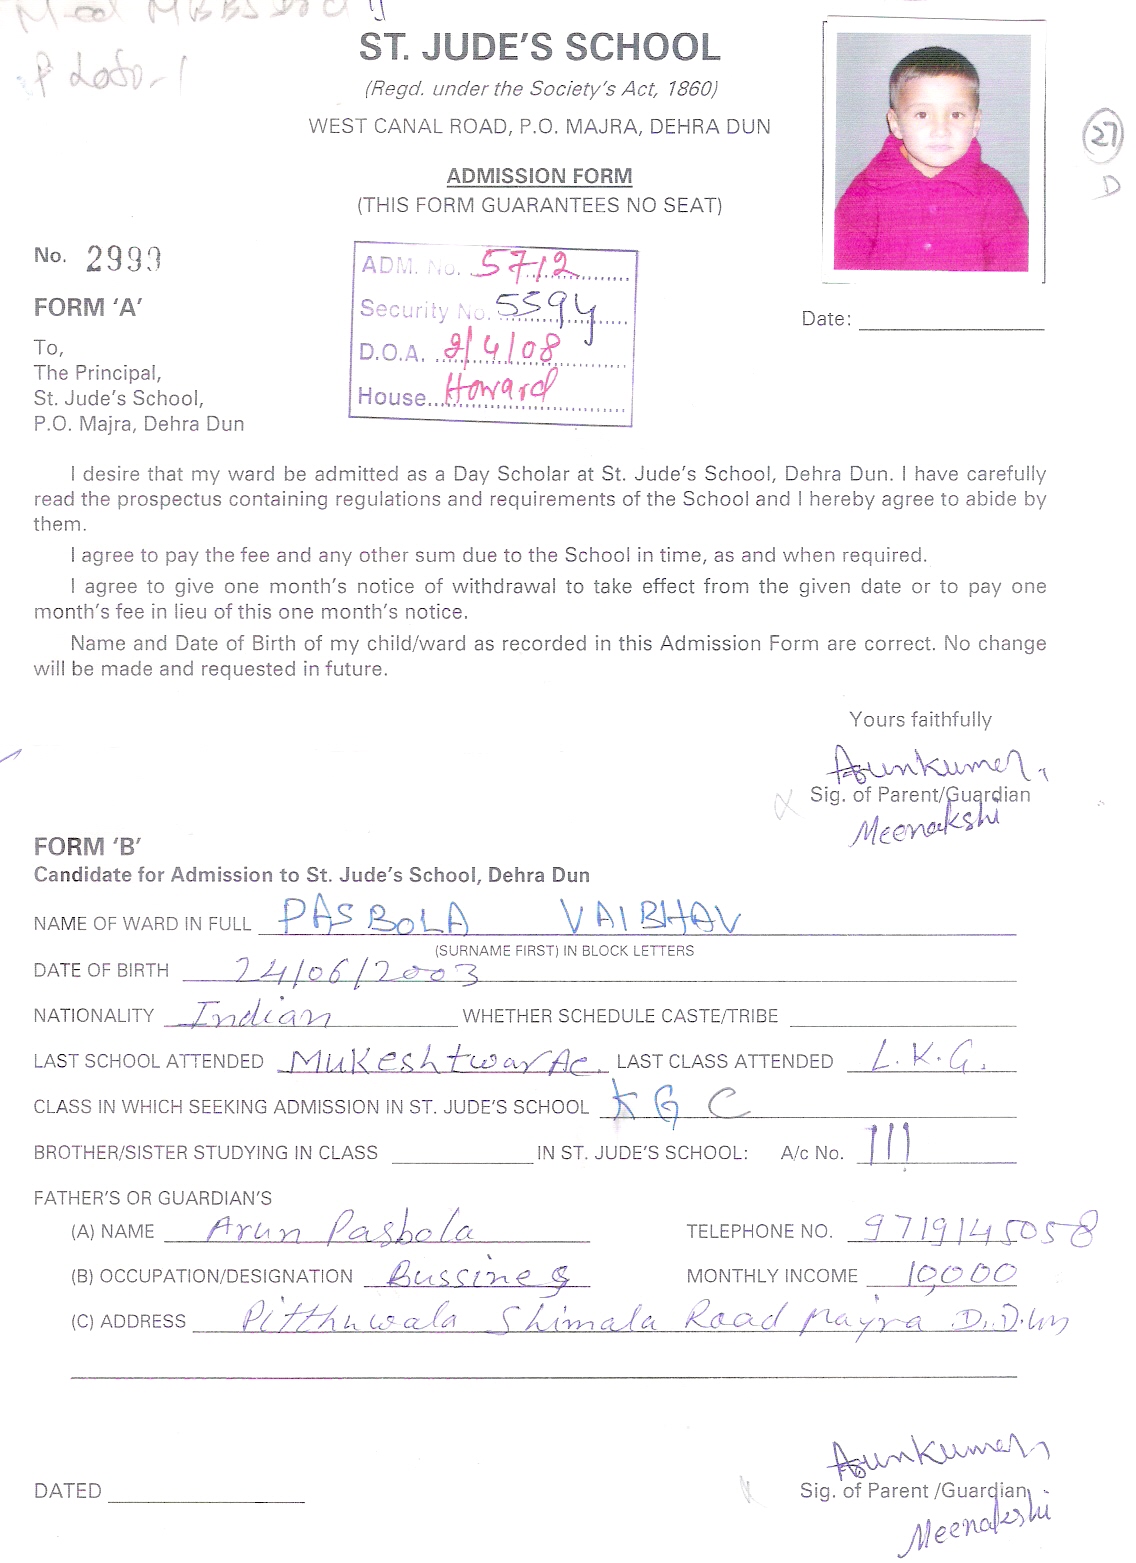 ST. JUDE'S SCHOOL
(Regd. under the Society's Act, 1860)
WEST CANAL ROAD, P.O. MAJRA, DEHRA DUN
27
D
ADMISSION FORM
(THIS FORM GUARANTEES NO SEAT)
No. 2999
ADM. No. 5712
Security No. 5594
D.O.A. 2/4/08
House Howard
FORM 'A'
Date:
To,
The Principal,
St. Jude's School,
P.O. Majra, Dehra Dun
I desire that my ward be admitted as a Day Scholar at St. Jude's School, Dehra Dun. I have carefully
read the prospectus containing regulations and requirements of the School and I hereby agree to abide by
them.
I agree to pay the fee and any other sum due to the School in time, as and when required.
I agree to give one month's notice of withdrawal to take effect from the given date or to pay one
month's fee in lieu of this one month's notice.
Name and Date of Birth of my child/ward as recorded in this Admission Form are correct. No change
will be made and requested in future.
Yours faithfully
Arunkumar
Sig. of Parent/Guardian
Meenakshi
FORM 'B'
Candidate for Admission to St. Jude's School, Dehra Dun
NAME OF WARD IN FULL PASBOLA VAIBHAV
(SURNAME FIRST) IN BLOCK LETTERS
DATE OF BIRTH 24/06/2003
NATIONALITY Indian WHETHER SCHEDULE CASTE/TRIBE
LAST SCHOOL ATTENDED Mukeshtwar Ac. LAST CLASS ATTENDED L.K.G.
CLASS IN WHICH SEEKING ADMISSION IN ST. JUDE'S SCHOOL KG C
BROTHER/SISTER STUDYING IN CLASS IN ST. JUDE'S SCHOOL: A/c No. 111
FATHER'S OR GUARDIAN'S
(A) NAME Arun Pasbola TELEPHONE NO. 9719145058
(B) OCCUPATION/DESIGNATION Bussines MONTHLY INCOME 10,000
(C) ADDRESS Pitthuwala Shimala Road Majra D.Dun
Arunkumar
DATED Sig. of Parent /Guardian
Meenakshi